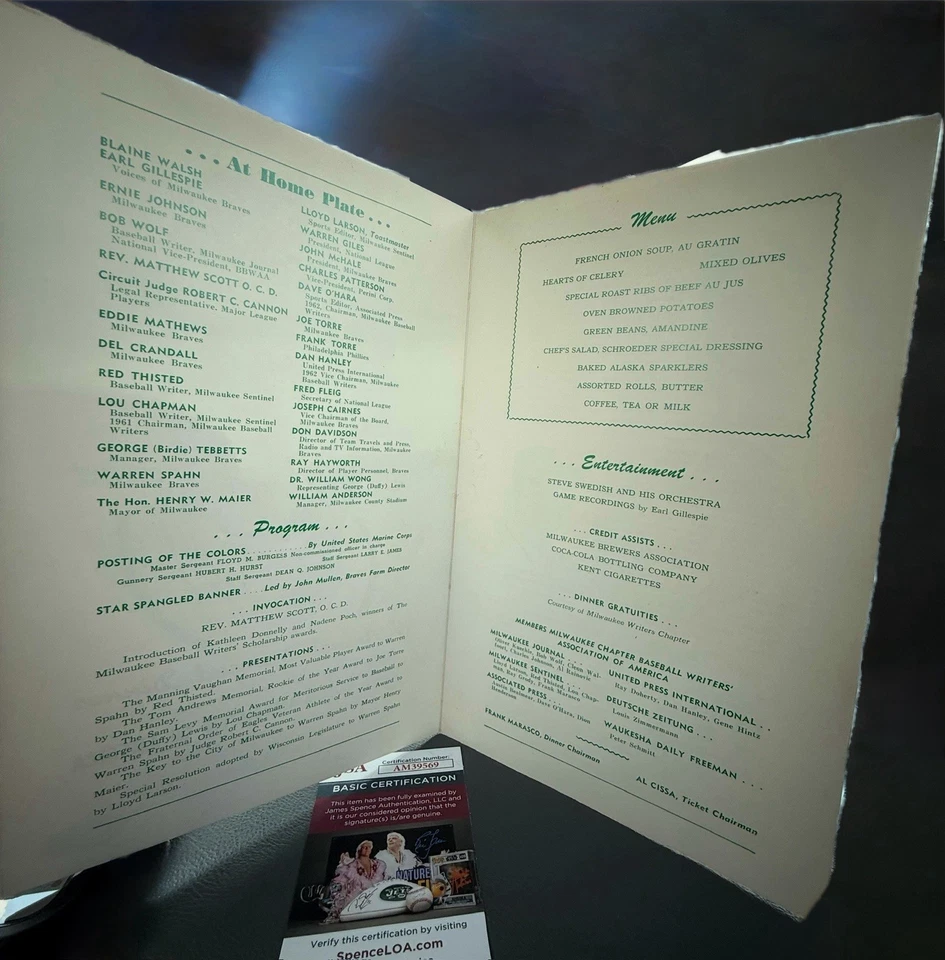 ... At Home Plate ...
BLAINE WALSH
EARL GILLESPIE
Voices of Milwaukee Braves
ERNIE JOHNSON
Milwaukee Braves
BOB WOLF
Baseball Writer, Milwaukee Journal
National Vice-President, BBWAA
REV. MATTHEW SCOTT O. C. D.
Circuit Judge ROBERT C. CANNON
Legal Representative, Major League
Players
EDDIE MATHEWS
Milwaukee Braves
DEL CRANDALL
Milwaukee Braves
RED THISTED
Baseball Writer, Milwaukee Sentinel
LOU CHAPMAN
Baseball Writer, Milwaukee Sentinel
1961 Chairman, Milwaukee Baseball
Writers
GEORGE (Birdie) TEBBETTS
Manager, Milwaukee Braves
WARREN SPAHN
Milwaukee Braves
The Hon. HENRY W. MAIER
Mayor of Milwaukee
LLOYD LARSON, Toastmaster
Sports Editor, Milwaukee Sentinel
WARREN GILES
President, National League
JOHN McHALE
President, Milwaukee Braves
CHARLES PATTERSON
Vice-President, Perini Corp.
DAVE O'HARA
Sports Editor, Associated Press
1962, Chairman, Milwaukee Baseball
Writers
JOE TORRE
Milwaukee Braves
FRANK TORRE
Philadelphia Phillies
DAN HANLEY
United Press International
1962 Vice Chairman, Milwaukee
Baseball Writers
FRED FLEIG
Secretary of National League
JOSEPH CAIRNES
Vice Chairman of the Board,
Milwaukee Braves
DON DAVIDSON
Director of Team Travels and Press,
Radio and TV Information, Milwaukee
Braves
RAY HAYWORTH
Director of Player Personnel, Braves
DR. WILLIAM WONG
Representing George (Duffy) Lewis
WILLIAM ANDERSON
Manager, Milwaukee County Stadium
... Program ...
POSTING OF THE COLORS ............ By United States Marine Corps
Master Sergeant FLOYD M. BURGESS Non-commissioned officer in charge
Gunnery Sergeant HUBERT H. HURST Staff Sergeant LARRY E. JAMES
Staff Sergeant DEAN Q. JOHNSON
STAR SPANGLED BANNER .... Led by John Mullen, Braves Farm Director
... INVOCATION ...
REV. MATTHEW SCOTT, O. C. D.
Introduction of Kathleen Donnelly and Nadene Poch, winners of The
Milwaukee Baseball Writers' Scholarship awards.
... PRESENTATIONS ...
The Manning Vaughan Memorial, Most Valuable Player Award to Warren
Spahn by Red Thisted.
The Tom Andrews Memorial, Rookie of the Year Award to Joe Torre
by Dan Hanley.
The Sam Levy Memorial Award for Meritorious Service to Baseball to
George (Duffy) Lewis by Lou Chapman.
The Fraternal Order of Eagles Veteran Athlete of the Year Award to
Warren Spahn by Judge Robert C. Cannon.
The Key to the City of Milwaukee to Warren Spahn by Mayor Henry
Maier.
Special Resolution adopted by Wisconsin Legislature to Warren Spahn
by Lloyd Larson.
Menu
FRENCH ONION SOUP, AU GRATIN
HEARTS OF CELERY MIXED OLIVES
SPECIAL ROAST RIBS OF BEEF AU JUS
OVEN BROWNED POTATOES
GREEN BEANS, AMANDINE
CHEF'S SALAD, SCHROEDER SPECIAL DRESSING
BAKED ALASKA SPARKLERS
ASSORTED ROLLS, BUTTER
COFFEE, TEA OR MILK
... Entertainment ...
STEVE SWEDISH AND HIS ORCHESTRA
GAME RECORDINGS by Earl Gillespie
... CREDIT ASSISTS ...
MILWAUKEE BREWERS ASSOCIATION
COCA-COLA BOTTLING COMPANY
KENT CIGARETTES
... DINNER GRATUITIES ...
Courtesy of Milwaukee Writers Chapter
MEMBERS MILWAUKEE CHAPTER BASEBALL WRITERS'
ASSOCIATION OF AMERICA
MILWAUKEE JOURNAL . . .
Oliver Kuechle, Bob Wolf, Cleon Wal-
foort, Charles Johnson, Al Rainovic
MILWAUKEE SENTINEL . . .
Lloyd Larson, Red Thisted, Lou Chap-
man, Ray Grody, Frank Marasco
ASSOCIATED PRESS . . .
Dave O'Hara, Dion
Henderson
UNITED PRESS INTERNATIONAL . .
Ray Doherty, Dan Hanley, Gene Hintz
DEUTSCHE ZEITUNG . . .
Louis Zimmermann
WAUKESHA DAILY FREEMAN . . .
Peter Schmitt
FRANK MARASCO, Dinner Chairman
AL CISSA, Ticket Chairman
JSA
Certification Number:
AM39569
BASIC CERTIFICATION
This item has been fully examined by
James Spence Authentication, LLC and
it is our considered opinion that the
signature(s) is/are genuine.
NATURE
Verify this certification by visiting
SpenceLOA.com